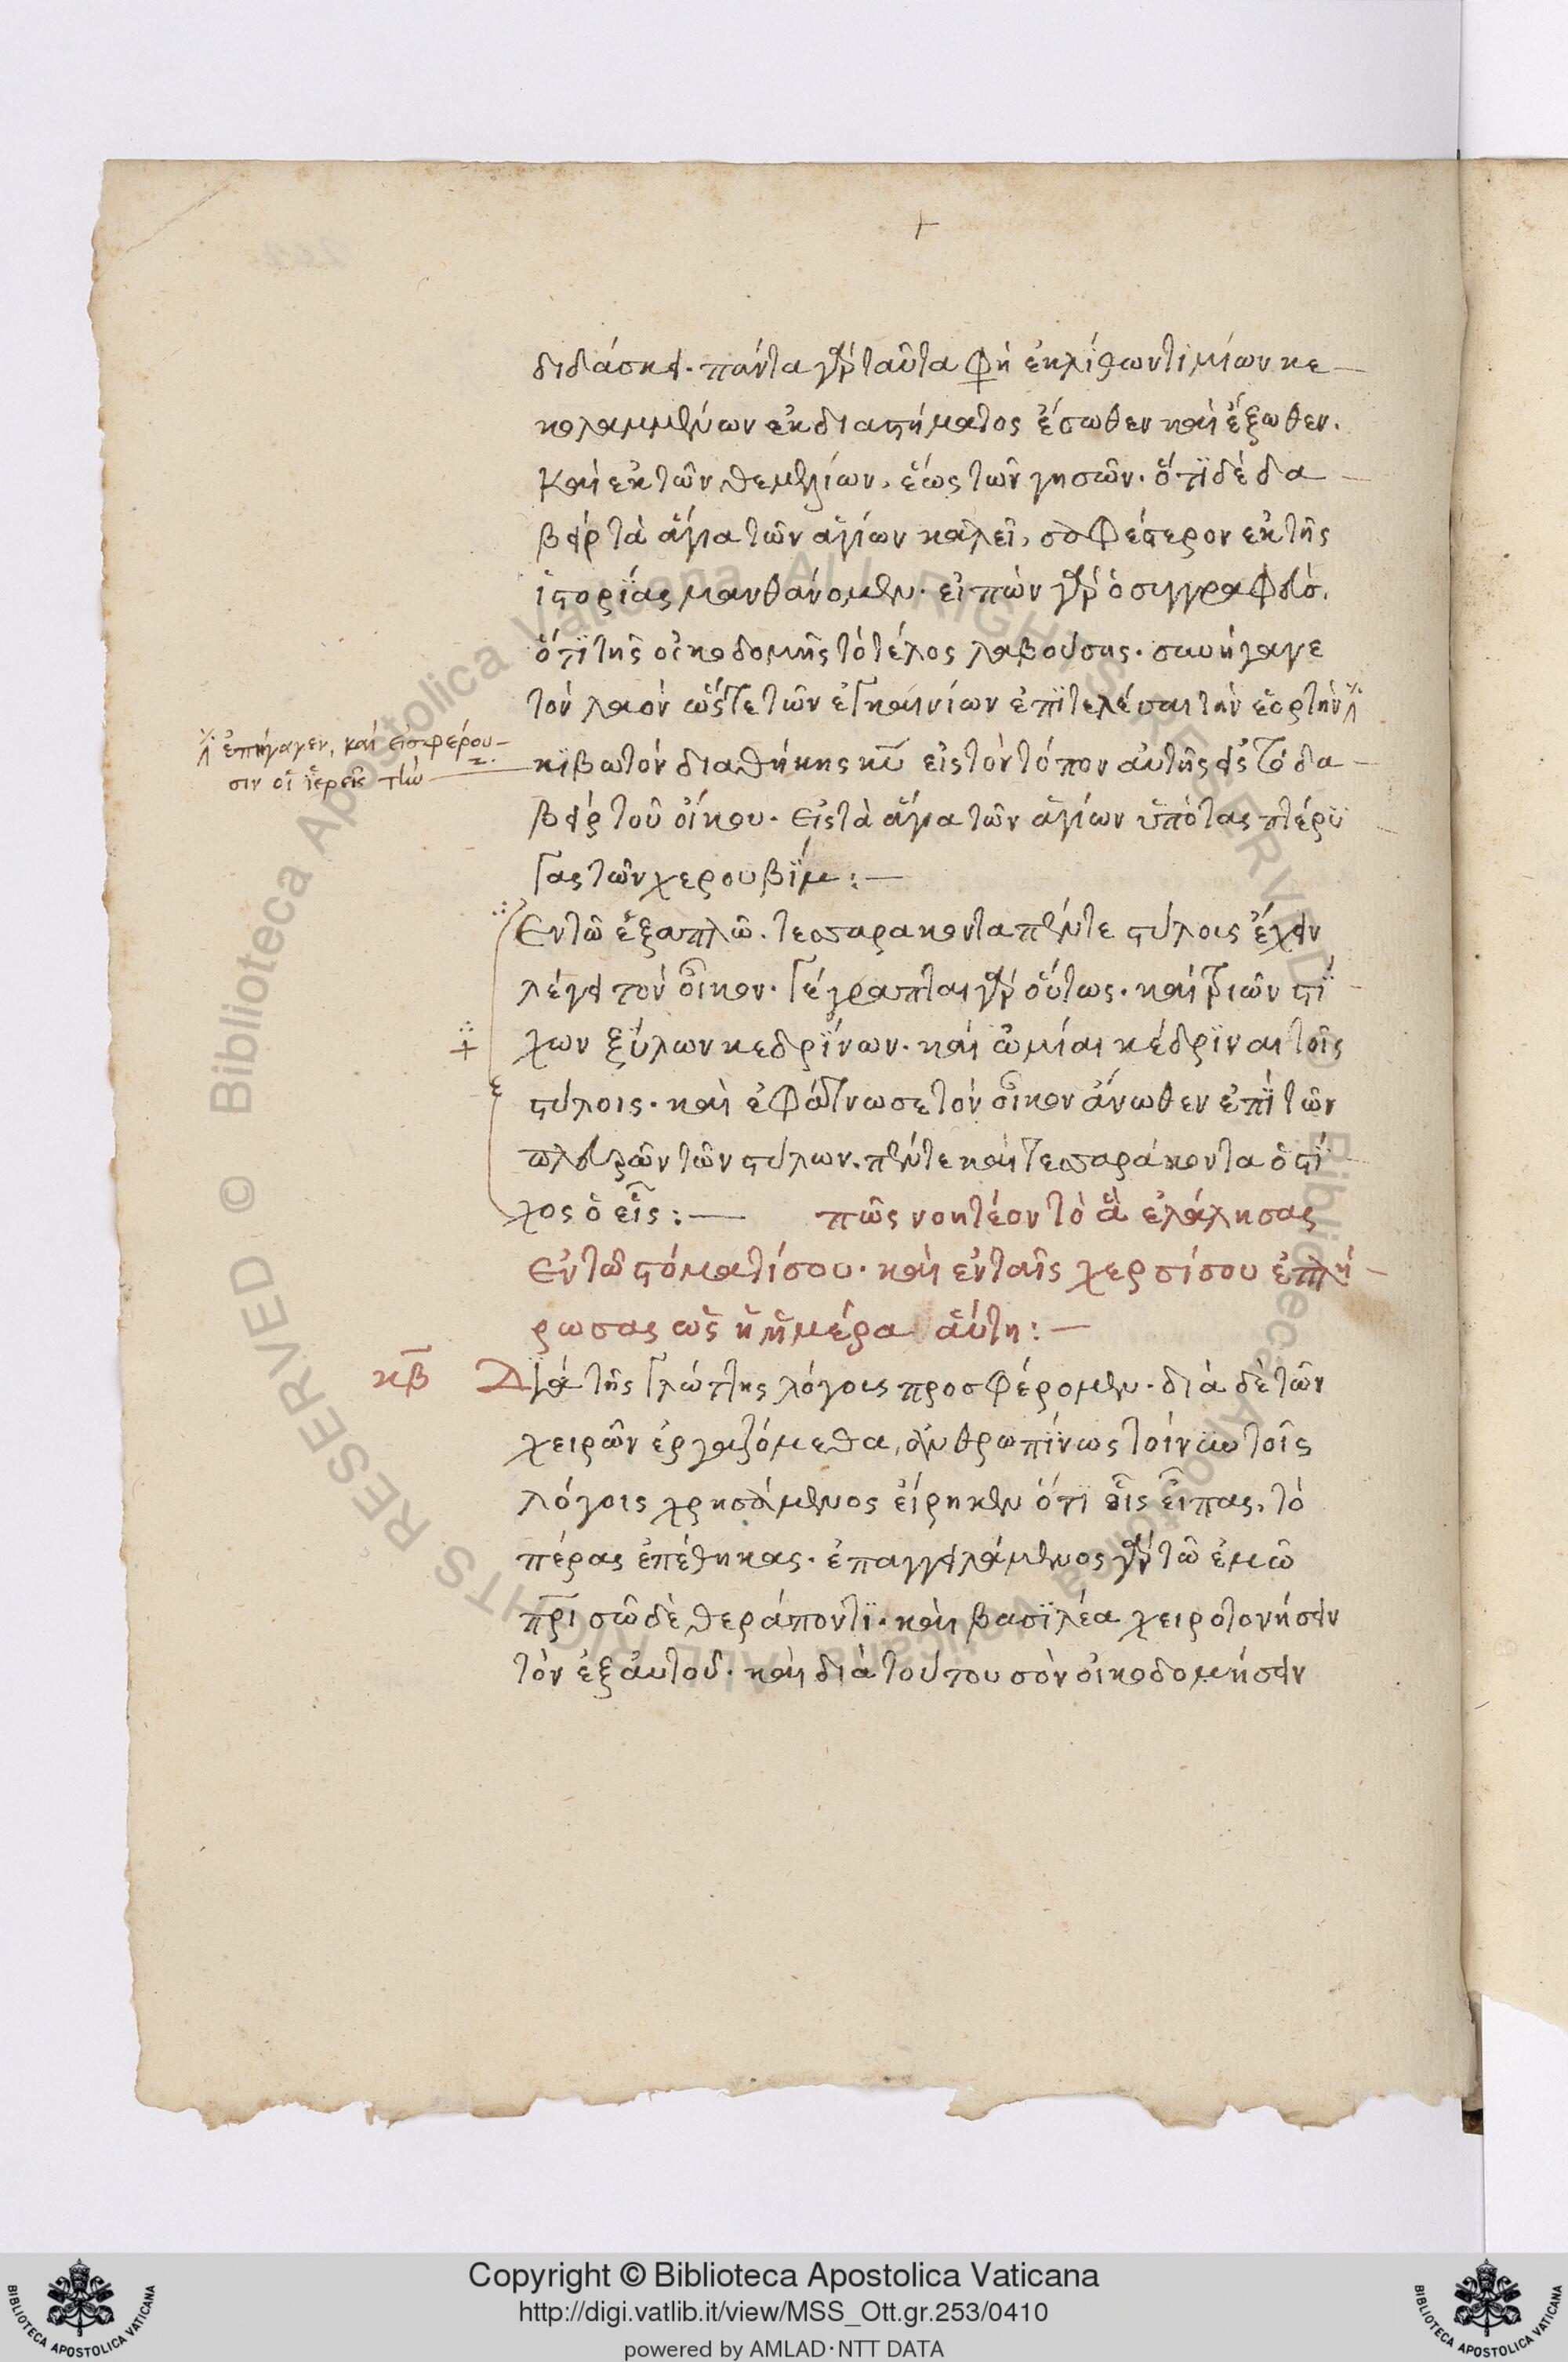 διδάσκει. πάντα γὰρ ταῦτα φη ἐκ λίθων τιμίων κε-
κολαμμένων ἐκ διαστήματος ἔσωθεν καὶ ἔξωθεν.
καὶ ἐκ τῶν θεμελίων, ἕως τῶν γησῶν. ὅτι δὲ δα-
βεὶρ τὰ ἅγια τῶν ἁγίων καλεῖ, σαφέστερον ἐκ τῆς
ἱστορίας μανθάνομεν. εἰπὼν γὰρ ὁ συγγραφεύς.
ὅτι τῆς οἰκοδομῆς τὸ τέλος λαβούσης. συνήγαγε
τὸν λαὸν ὥστε τῶν ἐγκαινίων ἐπιτελέσαι τὴν ἑορτὴν
ἐπήγαγεν, καὶ εἰσφέρου-
σιν οἱ ἱερεῖς τὴν
κιβωτὸν διαθήκης κυ εἰς τὸν τόπον αὐτῆς εἰς τὸ δα-
βεὶρ τοῦ οἴκου. εἰς τὰ ἅγια τῶν ἁγίων ὑπὸ τὰς πτέρυ
γας τῶν χερουβίμ:—
Εν τῶ ἑξαπλῶ. τεσσαρακονταπέντε στύλοις ἔχειν
λέγει τὸν οἶκον. γέγραπται γὰρ οὕτως. καὶ τριῶν στί
χων ξύλων κεδρίνων. καὶ ὠμίαι κέδριναι τοῖς
στύλοις. καὶ ἐφάτνωσε τὸν οἶκον ἄνωθεν ἐπὶ τῶν
πλευρῶν τῶν στύλων. πέντε καὶ τεσσαράκοντα ὁ στί
χος ὁ εἷς:— πῶς νοητέον τὸ ἃ ἐλάλησας
ἐν τῶ στόματί σου. καὶ ἐν ταῖς χερσί σου ἐπλή-
ρωσας ὡς ἡ ἡμέρα αὕτη:—
κβ Διὰ τῆς γλώττης λόγοις προσφέρομεν. διὰ δὲ τῶν
χειρῶν ἐργαζόμεθα, ἀνθρωπίνως τοίνυν τοῖς
λόγοις χρησάμενος εἴρηκεν ὅτι οἷς εἶπας, τὸ
πέρας ἐπέθηκας. ἐπαγγειλάμενος γὰρ τῶ ἐμῶ
πρι σῶ δὲ θεράποντι. καὶ βασιλέα χειροτονήσειν
τὸν ἐξ αὐτοῦ. καὶ διὰ τούτου σὸν οἰκοδομήσειν
Copyright © Biblioteca Apostolica Vaticana
http://digi.vatlib.it/view/MSS_Ott.gr.253/0410
powered by AMLAD·NTT DATA